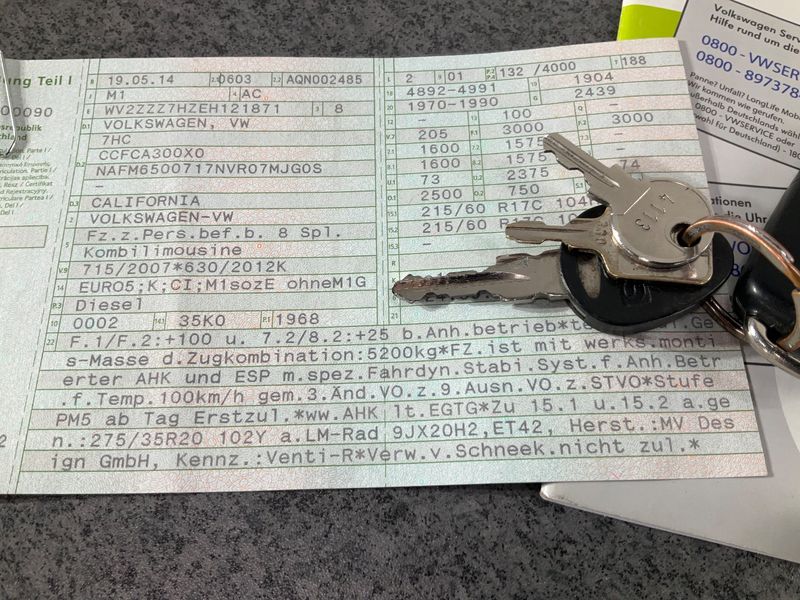 ung Teil I
00090
srepublik
chland
B 19.05.14 2.1 0603 2.2 AQN002485
J M1 4 AC
E WV2ZZZ7HZEH121871 3 8
D.1 VOLKSWAGEN, VW
7HC
D.2 CCFCA300X0
NAFM6500717NVR07MJG0S
–
D.3 CALIFORNIA
2 VOLKSWAGEN-VW
5 Fz.z.Pers.bef.b. 8 Spl.
Kombilimousine
V.9 715/2007*630/2012K
14 EURO5;K;CI;M1sozE ohneM1G
P.3 Diesel
10 0002 14.1 35K0 P.1 1968
L 2 9 01 P.2 P.4 132 /4000 T 188
18 4892-4991 19 1904
20 1970-1990 G 2439
12 – 13 100 Q –
V.7 205 F.1 3000 F.2 3000
7.1 1600 7.2 1575
8.1 1600 8.2 1575
U.1 73 U.2 2375 74
O.1 2500 O.2 750 S.1
15.1 215/60 R17C 104
15.2 215/60 R17C
15.3 –
R
K
21
22 F.1/F.2:+100 u. 7.2/8.2:+25 b.Anh.betrieb*
s-Masse d.Zugkombination:5200kg*FZ.ist mit werks.monti
erter AHK und ESP m.spez.Fahrdyn.Stabi.Syst.f.Anh.Betr
.f.Temp.100km/h gem.3.Änd.VO.z.9.Ausn.VO.z.STVO*Stufe
PM5 ab Tag Erstzul.*ww.AHK lt.EGTG*Zu 15.1 u.15.2 a.ge
n.:275/35R20 102Y a.LM-Rad 9JX20H2,ET42, Herst.:MV Des
ign GmbH, Kennz.:Venti-R*Verw.v.Schneek.nicht zul.*
4113
Volkswagen Serv
Hilfe rund um die
0800 - VWSERVIC
0800 - 8973784
Panne? Unfall? LongLife Mobi
Wir kommen wie gerufen.
außerhalb Deutschlands wähl
0800 - VWSERVICE oder
wohl für Deutschland) - 180
ationen
die Uhr